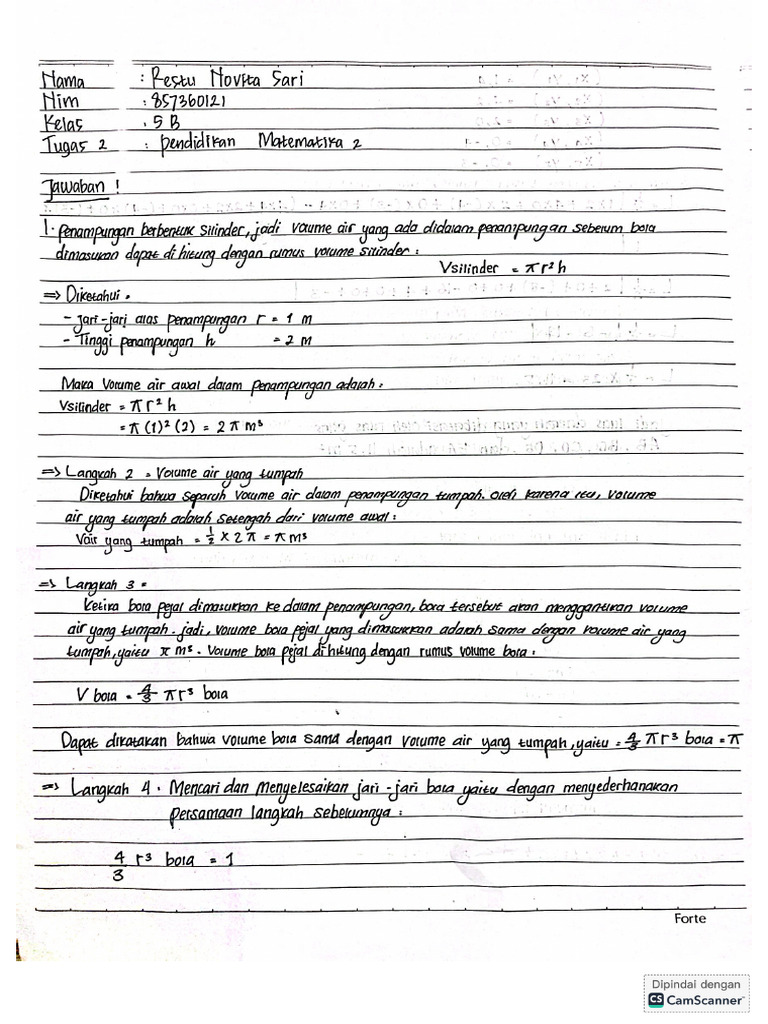 Nama : Restu Novita Sari
Nim : 857360121
Kelas : 5 B
Tugas 2 : Pendidikan Matematika 2
Jawaban !
1. Penampungan berbentuk silinder, jadi volume air yang ada didalam penampungan sebelum bola
dimasukan dapat di hitung dengan rumus volume silinder :
Vsilinder = π r² h
=> Diketahui =
- Jari-jari alas penampungan r = 1 m
- Tinggi penampungan h = 2 m
Maka volume air awal dalam penampungan adalah :
Vsilinder = π r² h
= π (1)² (2) = 2 π m³
=> Langkah 2 = Volume air yang tumpah
Diketahui bahwa separuh volume air dalam penampungan tumpah. Oleh karena itu, volume
air yang tumpah adalah setengah dari volume awal :
Vair yang tumpah = ½ x 2 π = π m³
=> Langkah 3 =
Ketika bola pejal dimasukkan ke dalam penampungan, bola tersebut akan menggantikan volume
air yang tumpah. Jadi, volume bola pejal yang dimasukkan adalah sama dengan volume air yang
tumpah, yaitu π m³. Volume bola pejal di hitung dengan rumus volume bola :
V bola = 4/3 π r³ bola
Dapat dikatakan bahwa volume bola sama dengan volume air yang tumpah, yaitu = 4/3 π r³ bola = π
=> Langkah 4 . Mencari dan menyelesaikan jari-jari bola yaitu dengan menyederhanakan
persamaan langkah sebelumnya :
4/3 r³ bola = 1
Forte
Dipindai dengan
CS CamScanner